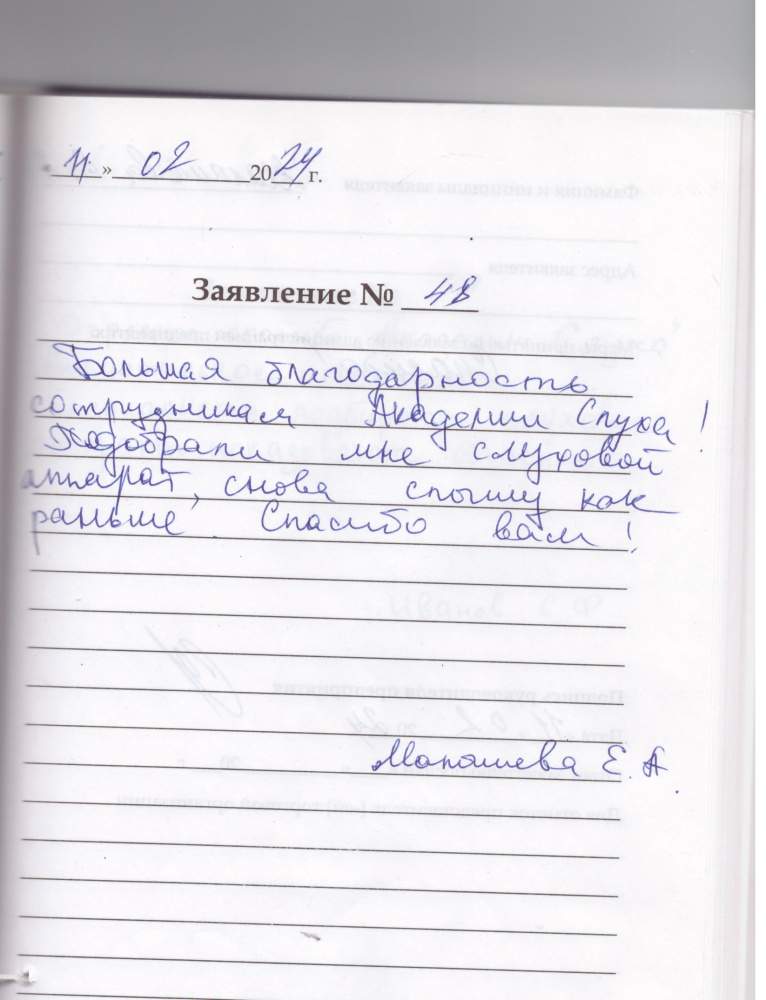 11 » 02 2024 г.
Заявление № 48
Большая благодарность
сотрудникам Академии Слуха!
Подобрали мне слуховой
аппарат, снова слышу как
раньше. Спасибо вам!
Е. А.